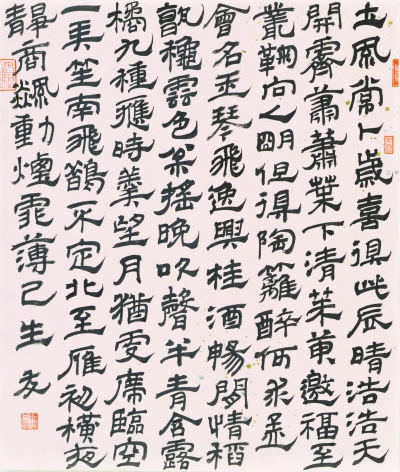 土風常卜歲喜得此辰晴浩浩天
開霽蕭蕭葉下清茱萸邀福至
叢鞠向人明但得陶籬醉何求孟
會名玉琴飛逸興桂酒暢閒情稻
孰龝雲色枀搖晚吹聲半青含露
橘九種應時羹望月猶虛席臨空
一弄笙南飛鵲不定北至雁初橫夜
靜商飈動煙霏薄已生 友